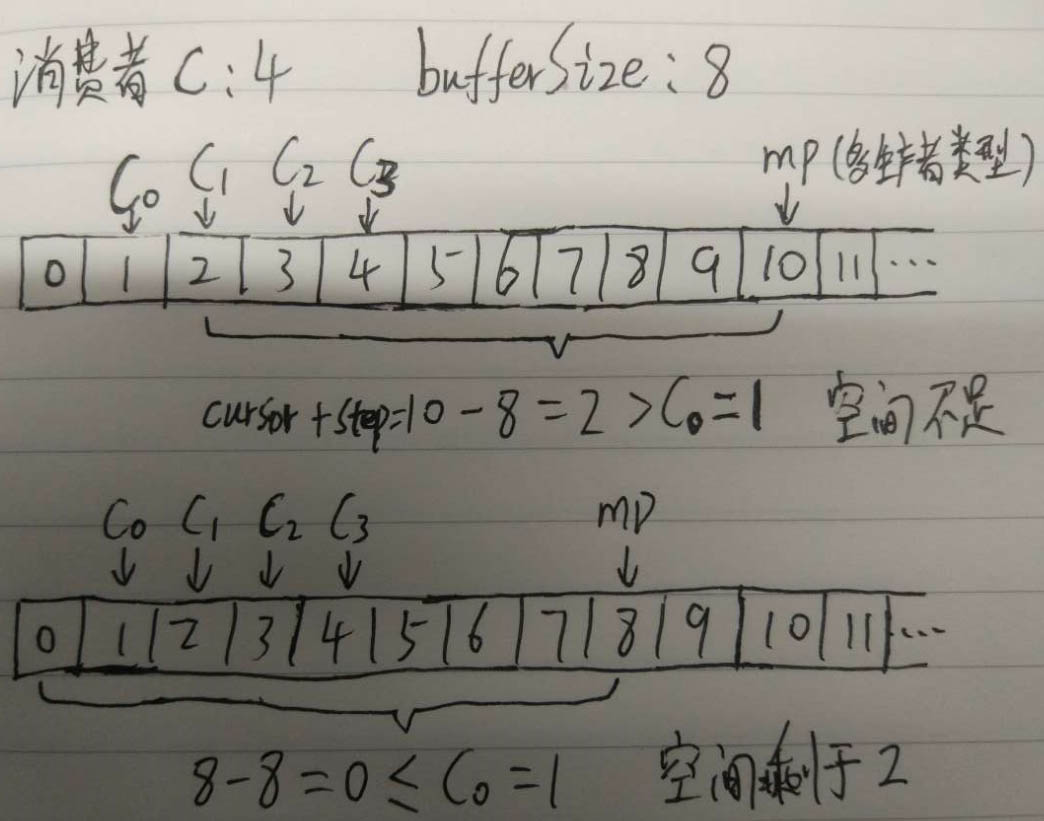 消费者 C:4 bufferSize:8
C0 C1 C2 C3 mp(多生产者类型)
0 1 2 3 4 5 6 7 8 9 10 11 ...
cursor+step=10-8=2>C0=1 空间不足
C0 C1 C2 C3 mp
0 1 2 3 4 5 6 7 8 9 10 11 ...
8-8=0≤C0=1 空间剩于2